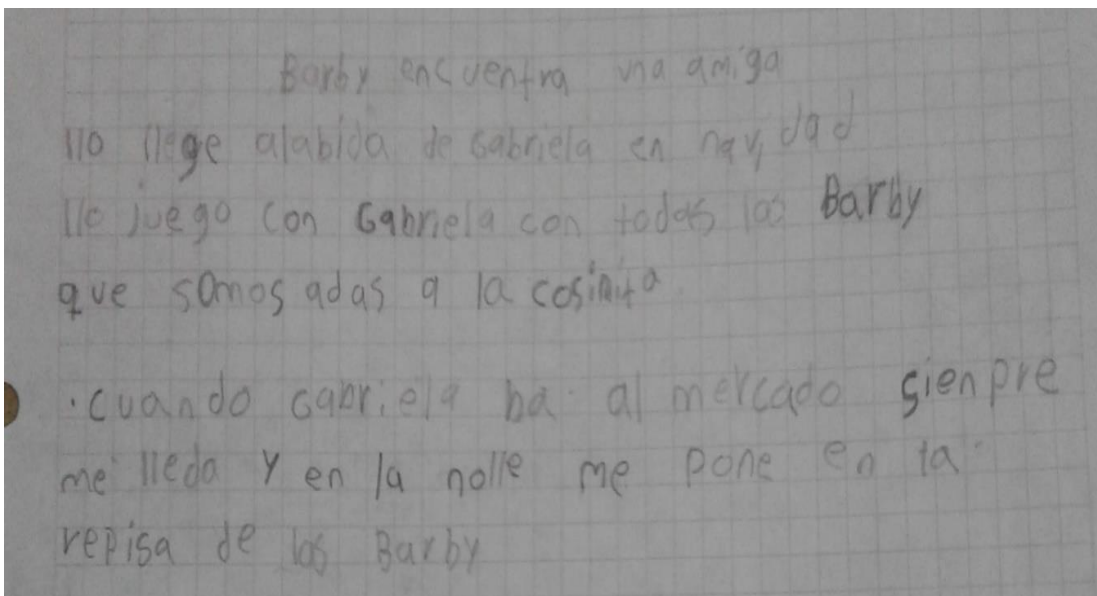 Barby encuentra una amiga
llo llege alabida de Gabriela en navidad
llo juego con Gabriela con todas las Barby
que somos adas a la cosinita
. cuando Gabriela ba al mercado sienpre
me lleda y en la nolle me pone en la
repisa de las Barby